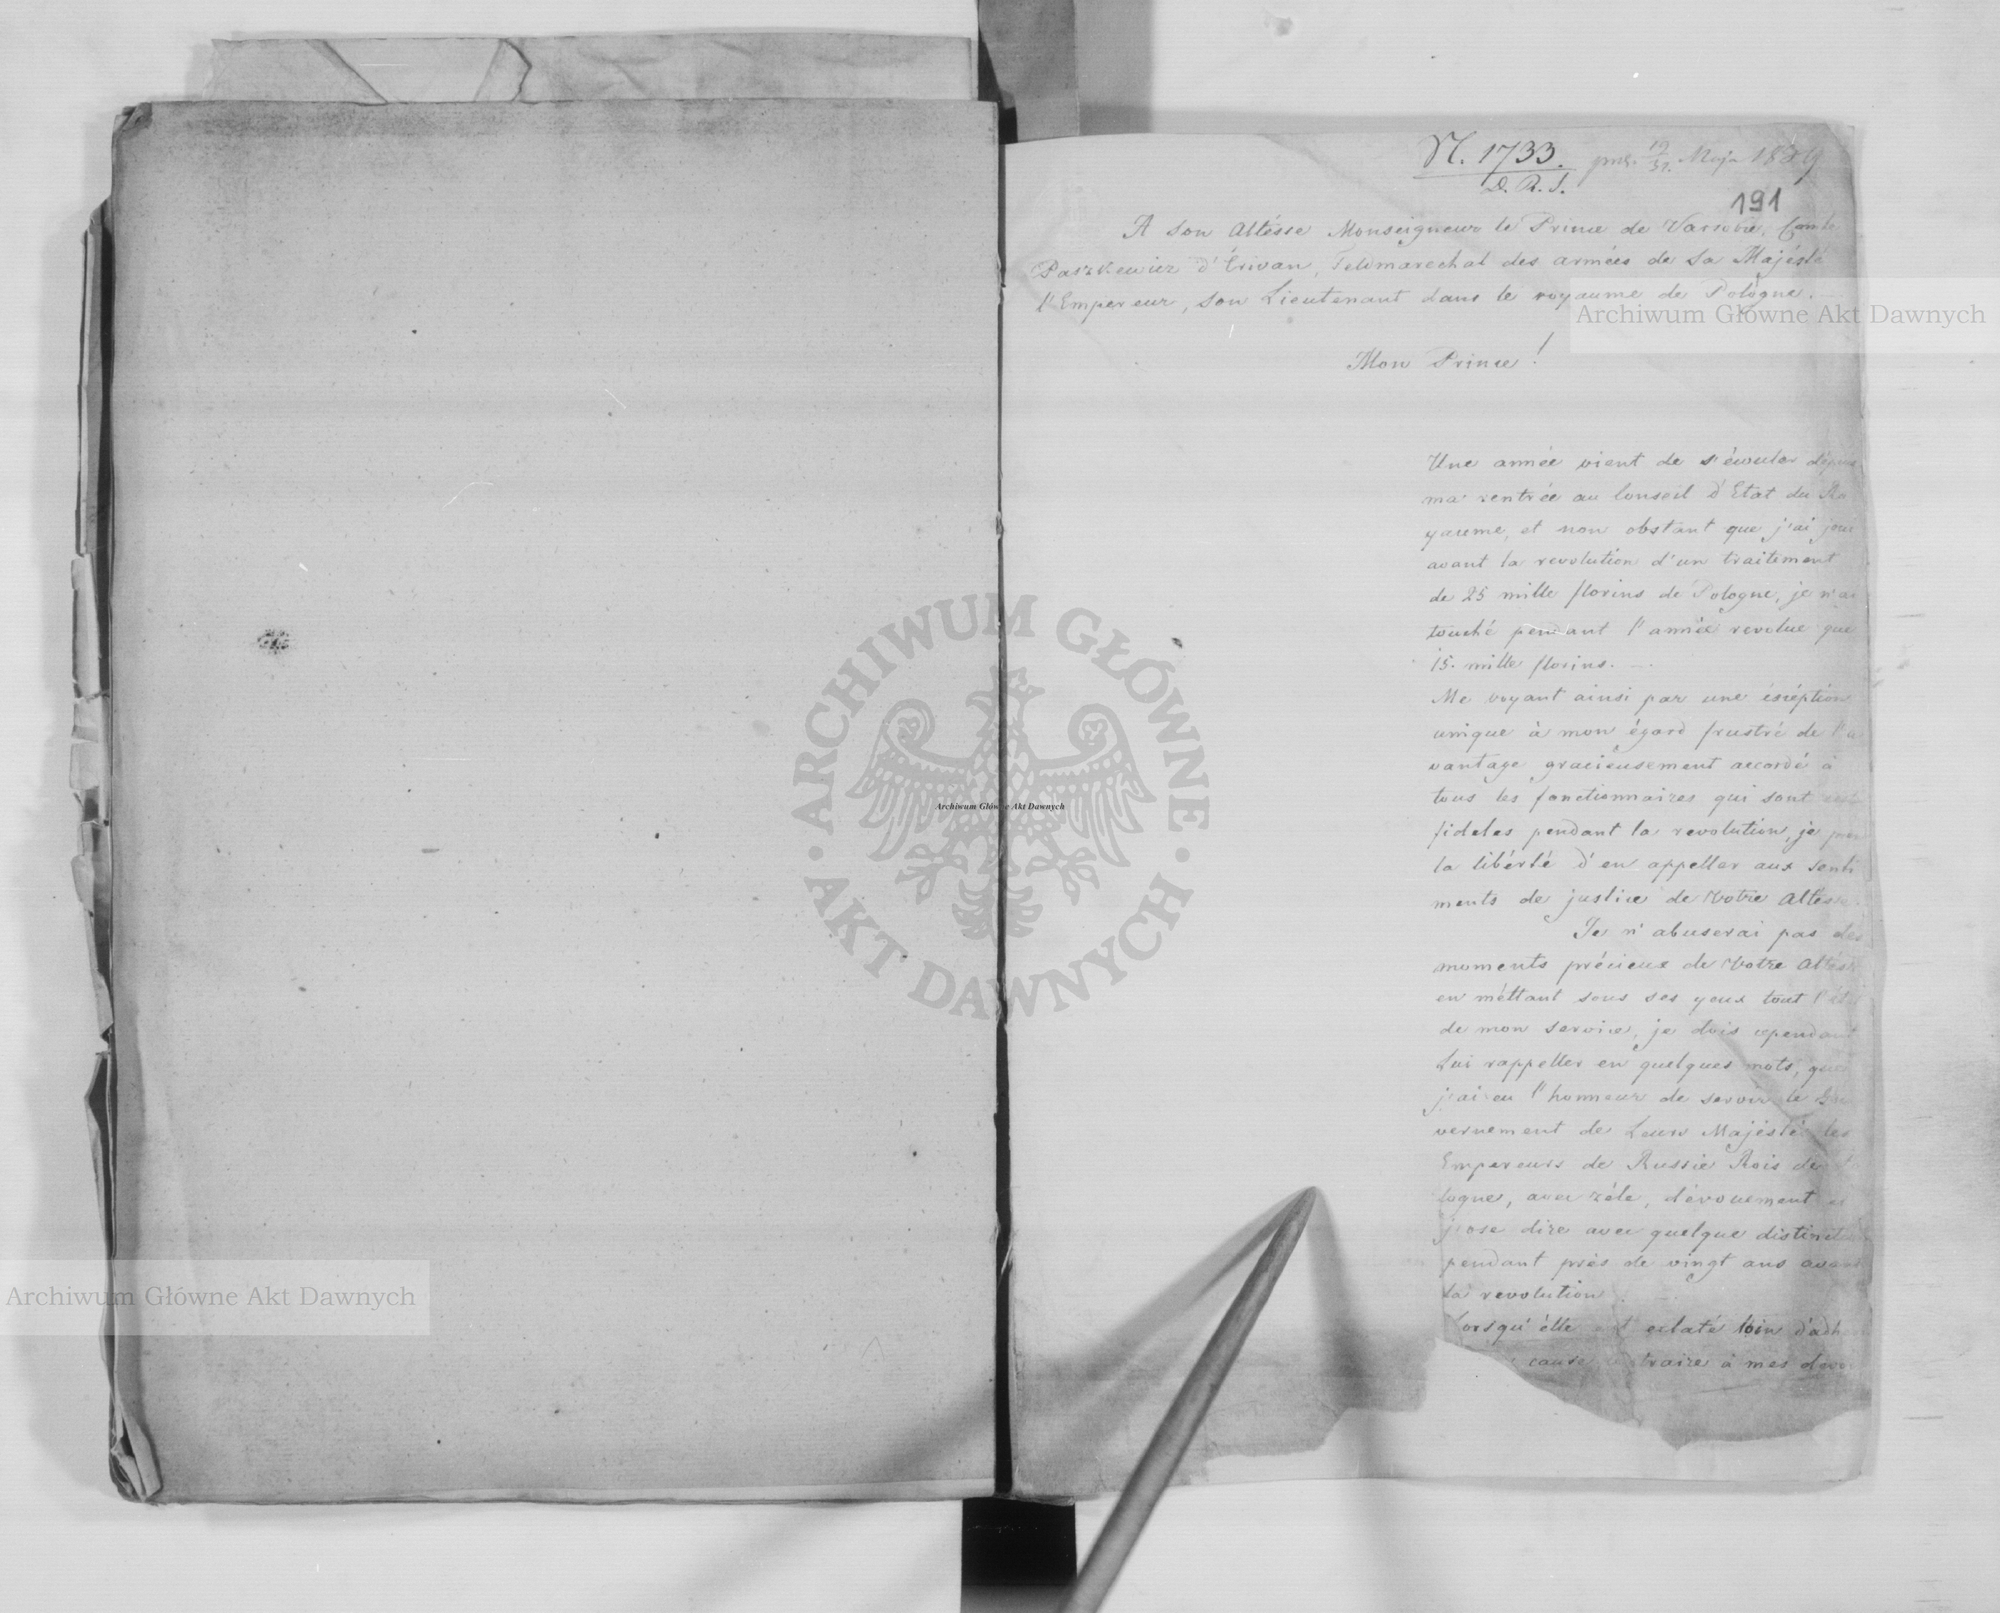 N. 1733. pns. 19/31. Maja 1839
D. R. S.
191
A Son Altésse Monseigneur le Prince de Varsovie, Comte
Paszkewicz d'Érivan, Feldmarechal des armées de Sa Majésté
l'Empereur, Son Lieutenant dans le royaume de Pologne.
Mon Prince!
Une année vient de s'écouler dépuis
ma rentrée au Conseil d'Etat du Ro
yaume, et non obstant que j'ai joui
avant la revolution d'un traitement
de 25 mille florins de Pologne, je n'ai
touché pendant l'année revolue que
15. mille florins. —
Me voyant ainsi par une éxcéption
unique à mon égard frustré de l'a
vantage gracieusement accordé à
tous les fonctionnaires qui sont
fideles pendant la revolution, je
la libérté d'en appeller aux senti
ments de justice de Votre Altesse.
Je n'abuserai pas des
moments précieux de Votre Altesse
en méttant sous ses yeux tout l'
de mon service, je dois cependant
Lui rappeller en quelques mots, que
j'ai eu l'honneur de servir le Gou
vernement de Leurs Majéstés les
Empereurs de Russie Rois de Po
logne, avec zéle, dévouement et
j'ose dire avec quelque distinction
pendant près de vingt ans avant
la revolution.
Lorsqu'élle est eclaté loin d'adh
cause contraire à mes devo
Archiwum Główne Akt Dawnych
Archiwum Główne Akt Dawnych
Archiwum Główne Akt Dawnych
ARCHIWUM GŁÓWNE
AKT DAWNYCH